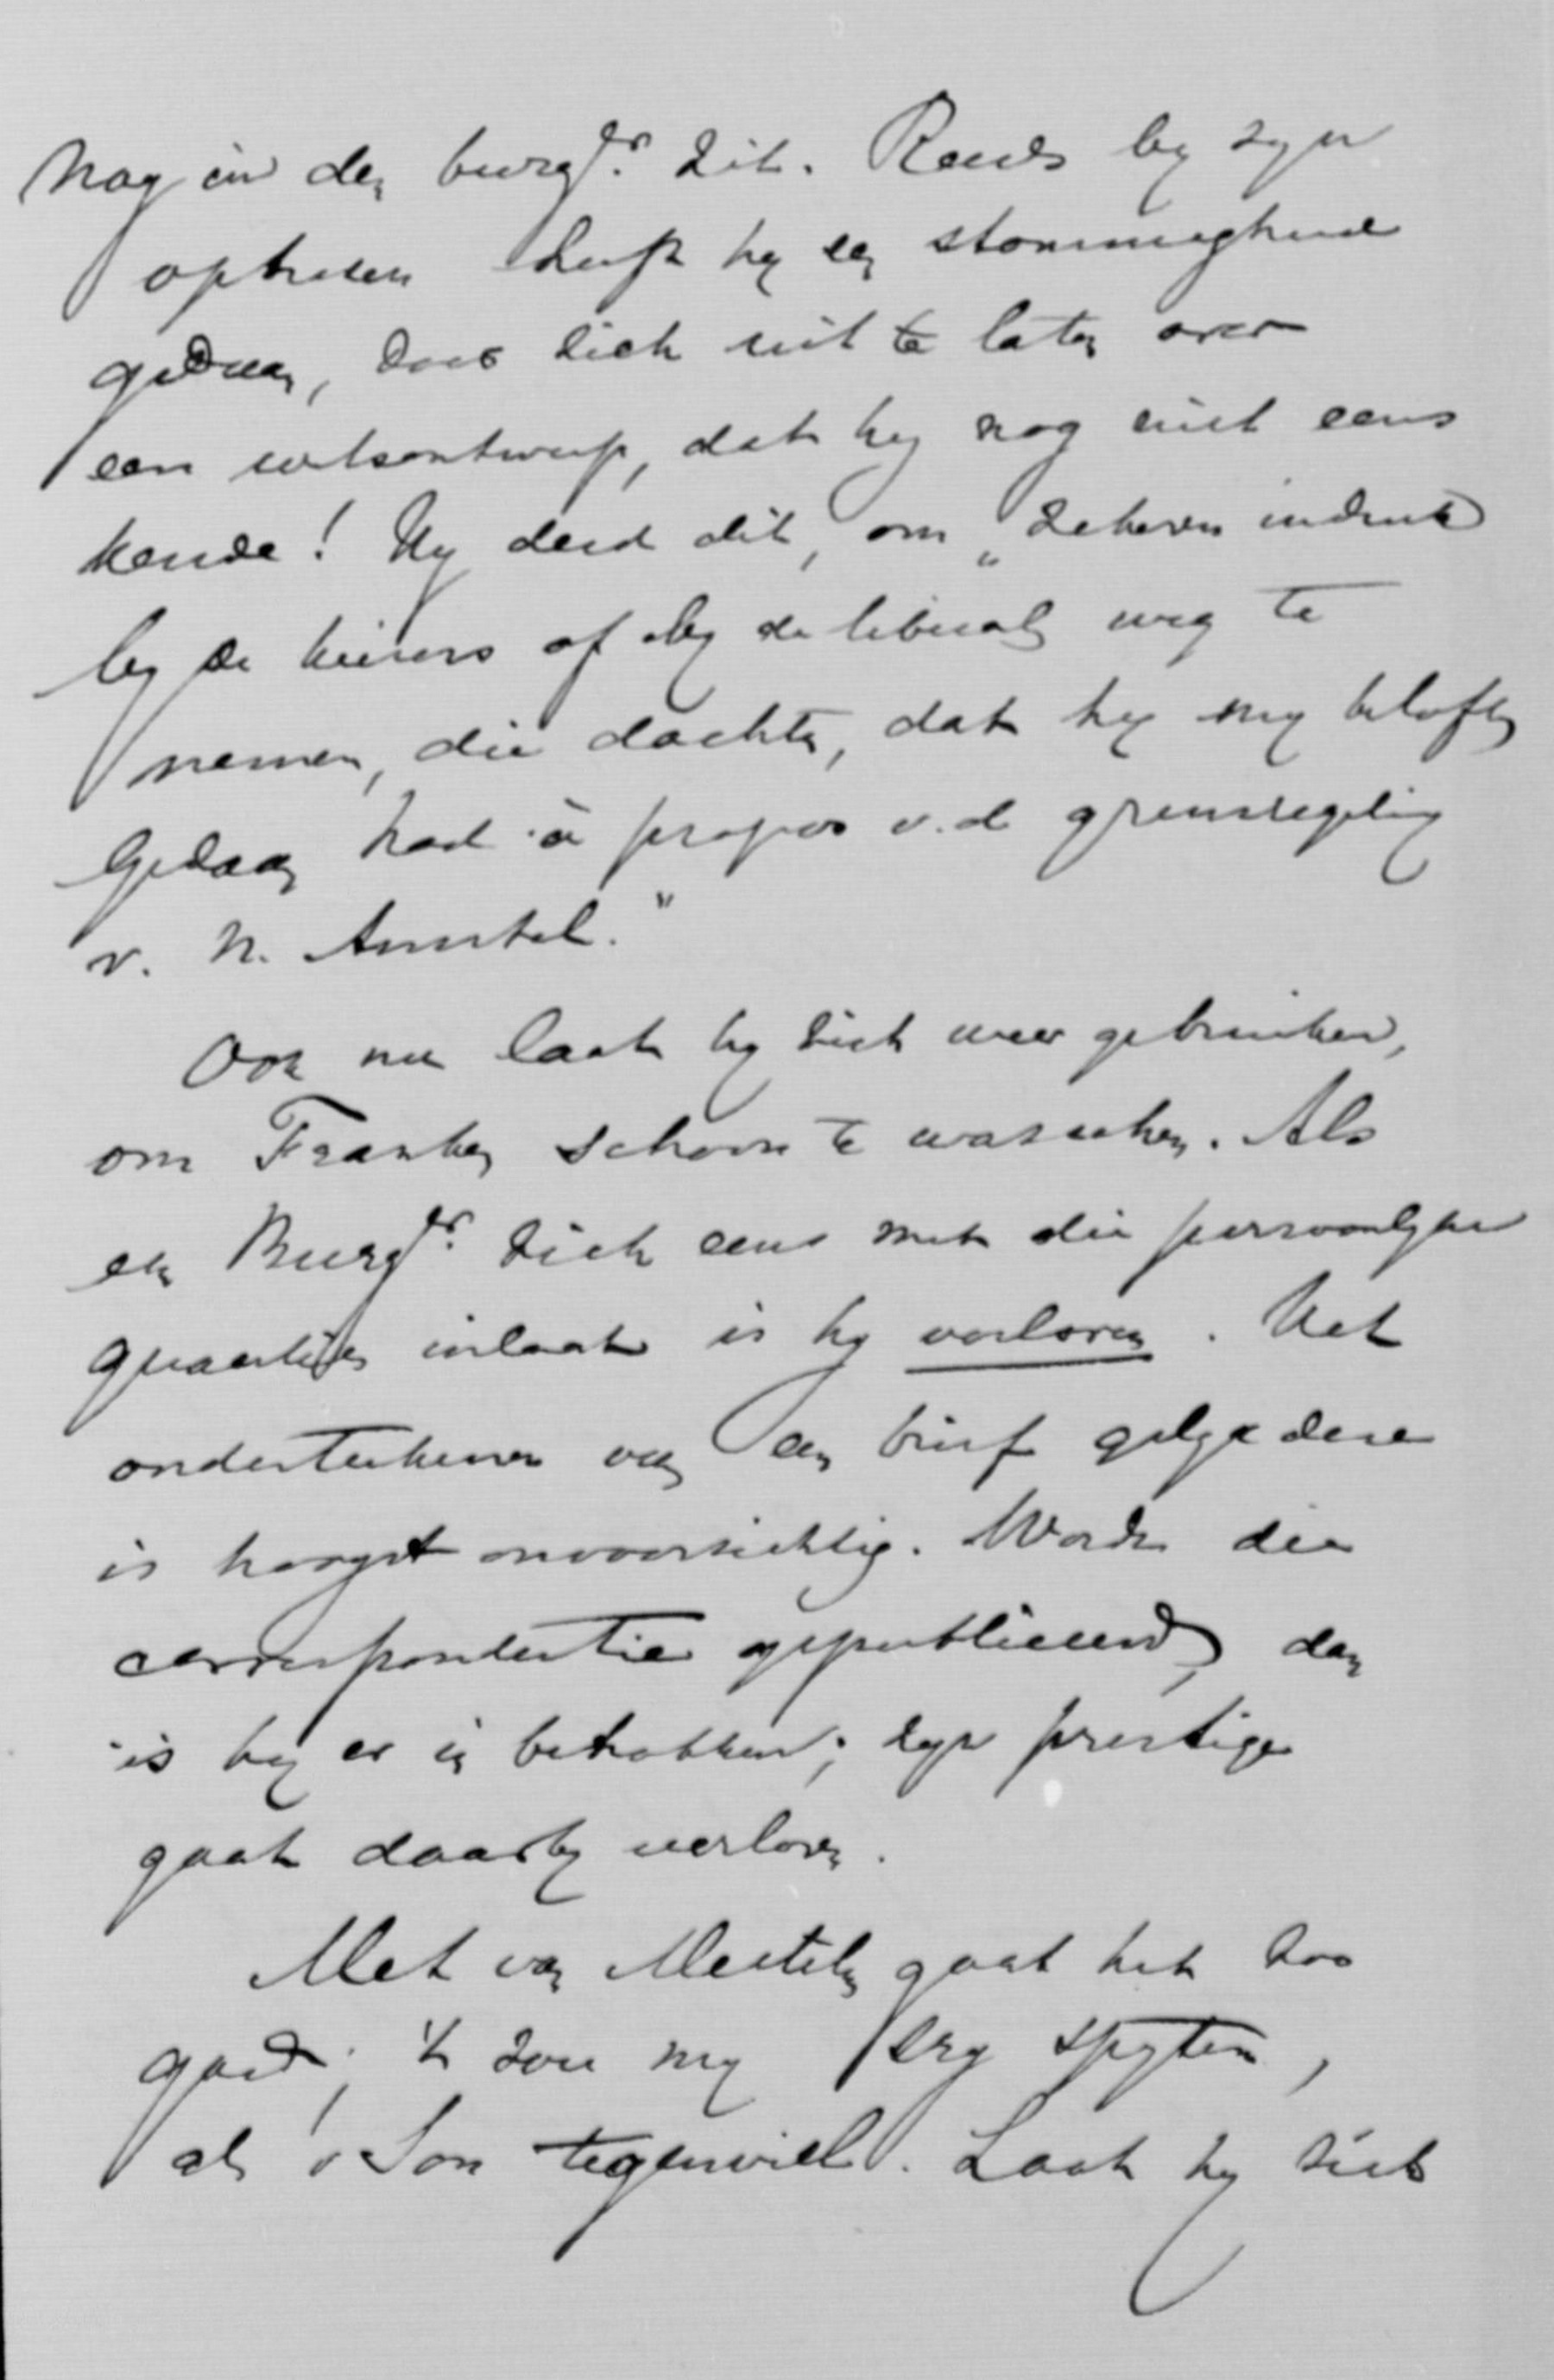 nog in den burgr. zit. Reeds by zyn
optreden heeft hy een stommigheid
gedaan, door zich uit te laten over
een wetsontwerp, dat hy nog niet eens
kende! Hy deed dit, om „zekeren indruk
by de kiezers of by de liberalen weg te
nemen, die dachten, dat hy my beloften
gedaan had à propos v.d grensregeling
v. N. Amstel."
Ook nu laat hy zich weer gebruiken,
om Franken schoon te wasschen. Als
een Burgr. zich eens met die persoonlyke
quaesties inlaat is hy verloren. Het
onderteekenen van een brief gelyk deze
is hoogst onvoorzichtig. Wordt die
correspondentie gepubliceerd, dan
is hy er in betrokken; zyn prestige
gaat daarby verloren.
Met van gaat het zoo
goed; 't zou my erg spyten,
als v Son tegenviel. Laat hy zich